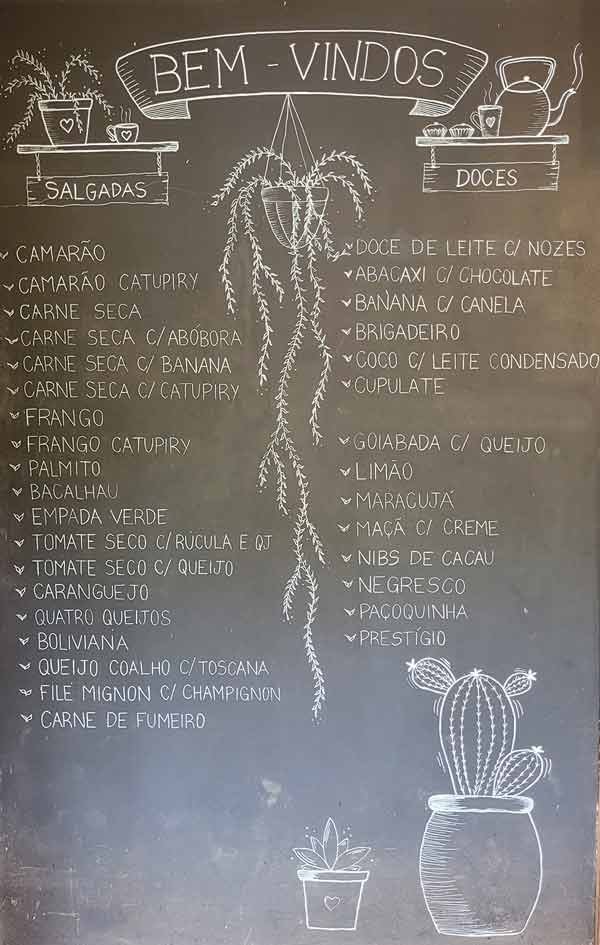 BEM - VINDOS
SALGADAS
CAMARÃO
CAMARÃO CATUPIRY
CARNE SECA
CARNE SECA C/ABÓBORA
CARNE SECA C/ BANANA
CARNE SECA C/ CATUPIRY
FRANGO
FRANGO CATUPIRY
PALMITO
BACALHAU
EMPADA VERDE
TOMATE SECO C/ RÚCULA E QJ
TOMATE SECO C/ QUEIJO
CARANGUEJO
QUATRO QUEIJOS
BOLIVIANA
QUEIJO COALHO C/TOSCANA
FILE MIGNON C/ CHAMPIGNON
CARNE DE FUMEIRO
DOCES
DOCE DE LEITE C/ NOZES
ABACAXI C/ CHOCOLATE
BANANA C/ CANELA
BRIGADEIRO
COCO C/ LEITE CONDENSADO
CUPULATE
GOIABADA C/ QUEIJO
LIMÃO
MARACUJÁ
MAÇÃ C/ CREME
NIBS DE CACAU
NEGRESCO
PAÇOQUINHA
PRESTÍGIO